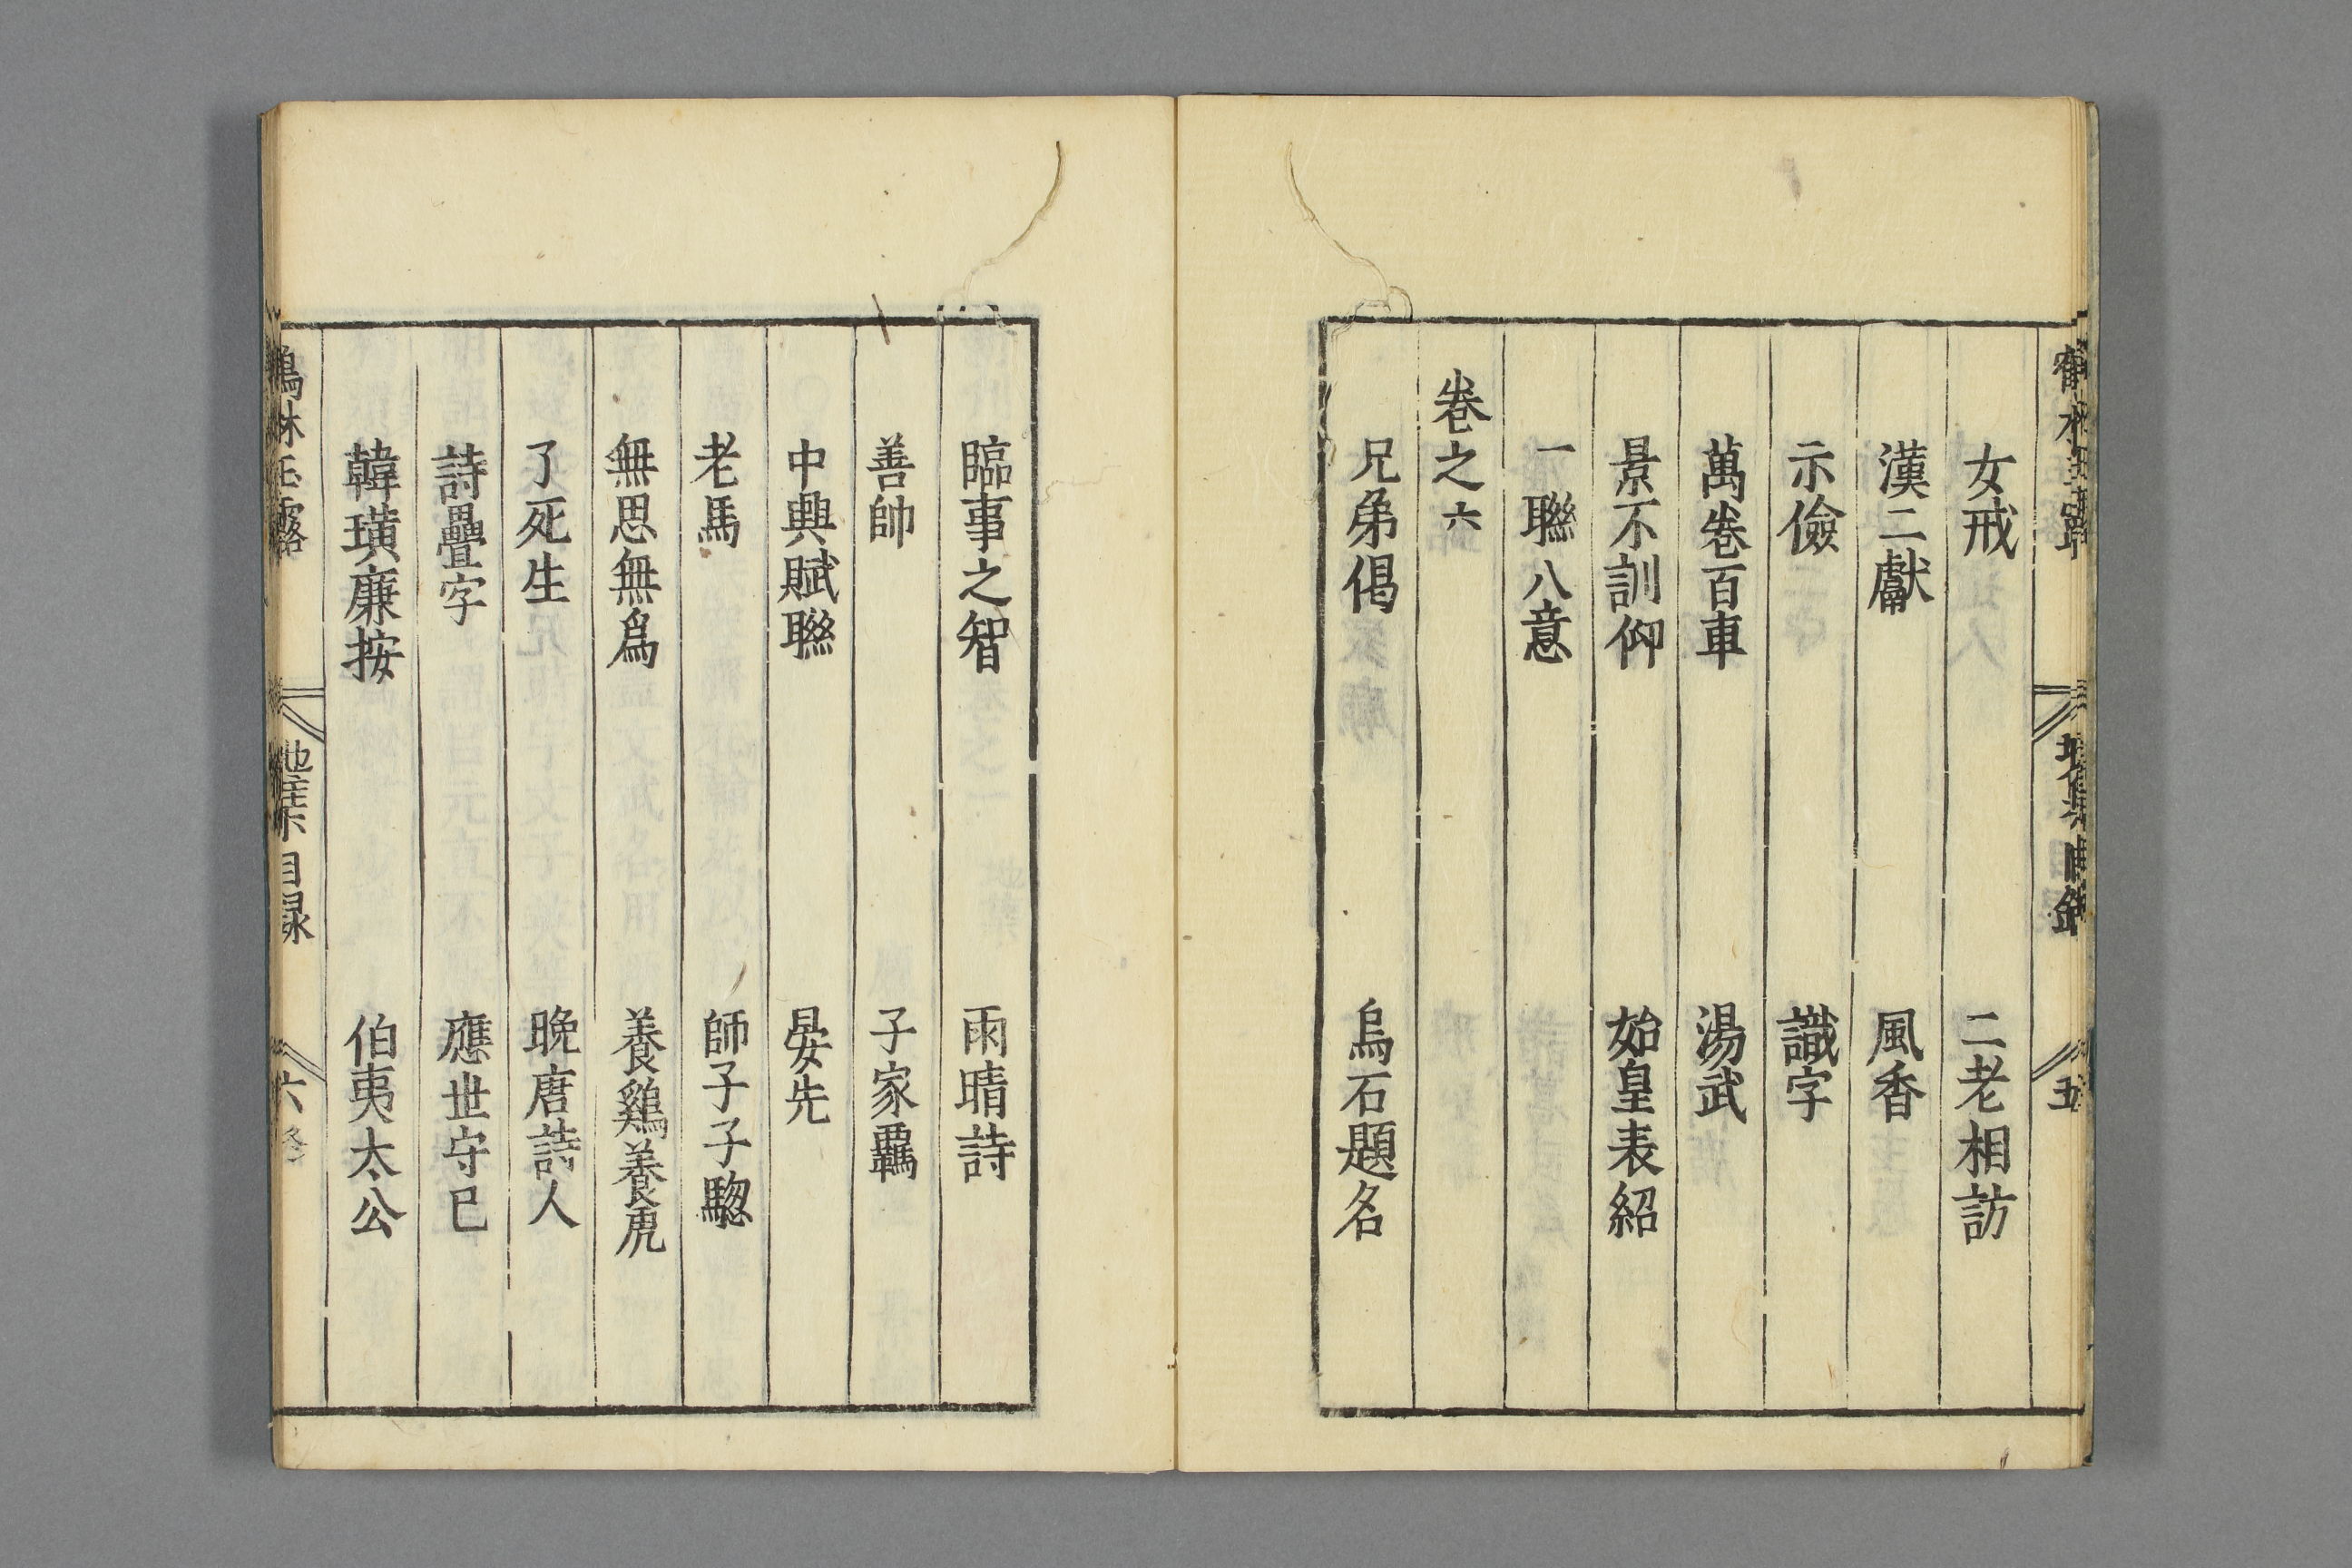 女戒 二老相訪
漢二獻 風香
示儉 識字
萬卷百車 湯武
景不訓仰 始皇表紹
一聯八意
卷之六
兄弟偈 烏石題名
臨事之智 雨晴詩
善帥 子家羈
中興賦聯 晏先
老馬 師子子騘
無思無爲 養鷄養虎
了死生 晚唐詩人
詩疊字 應世守己
韓璜廉按 伯夷太公
鶴林玉露 地集下目録 六